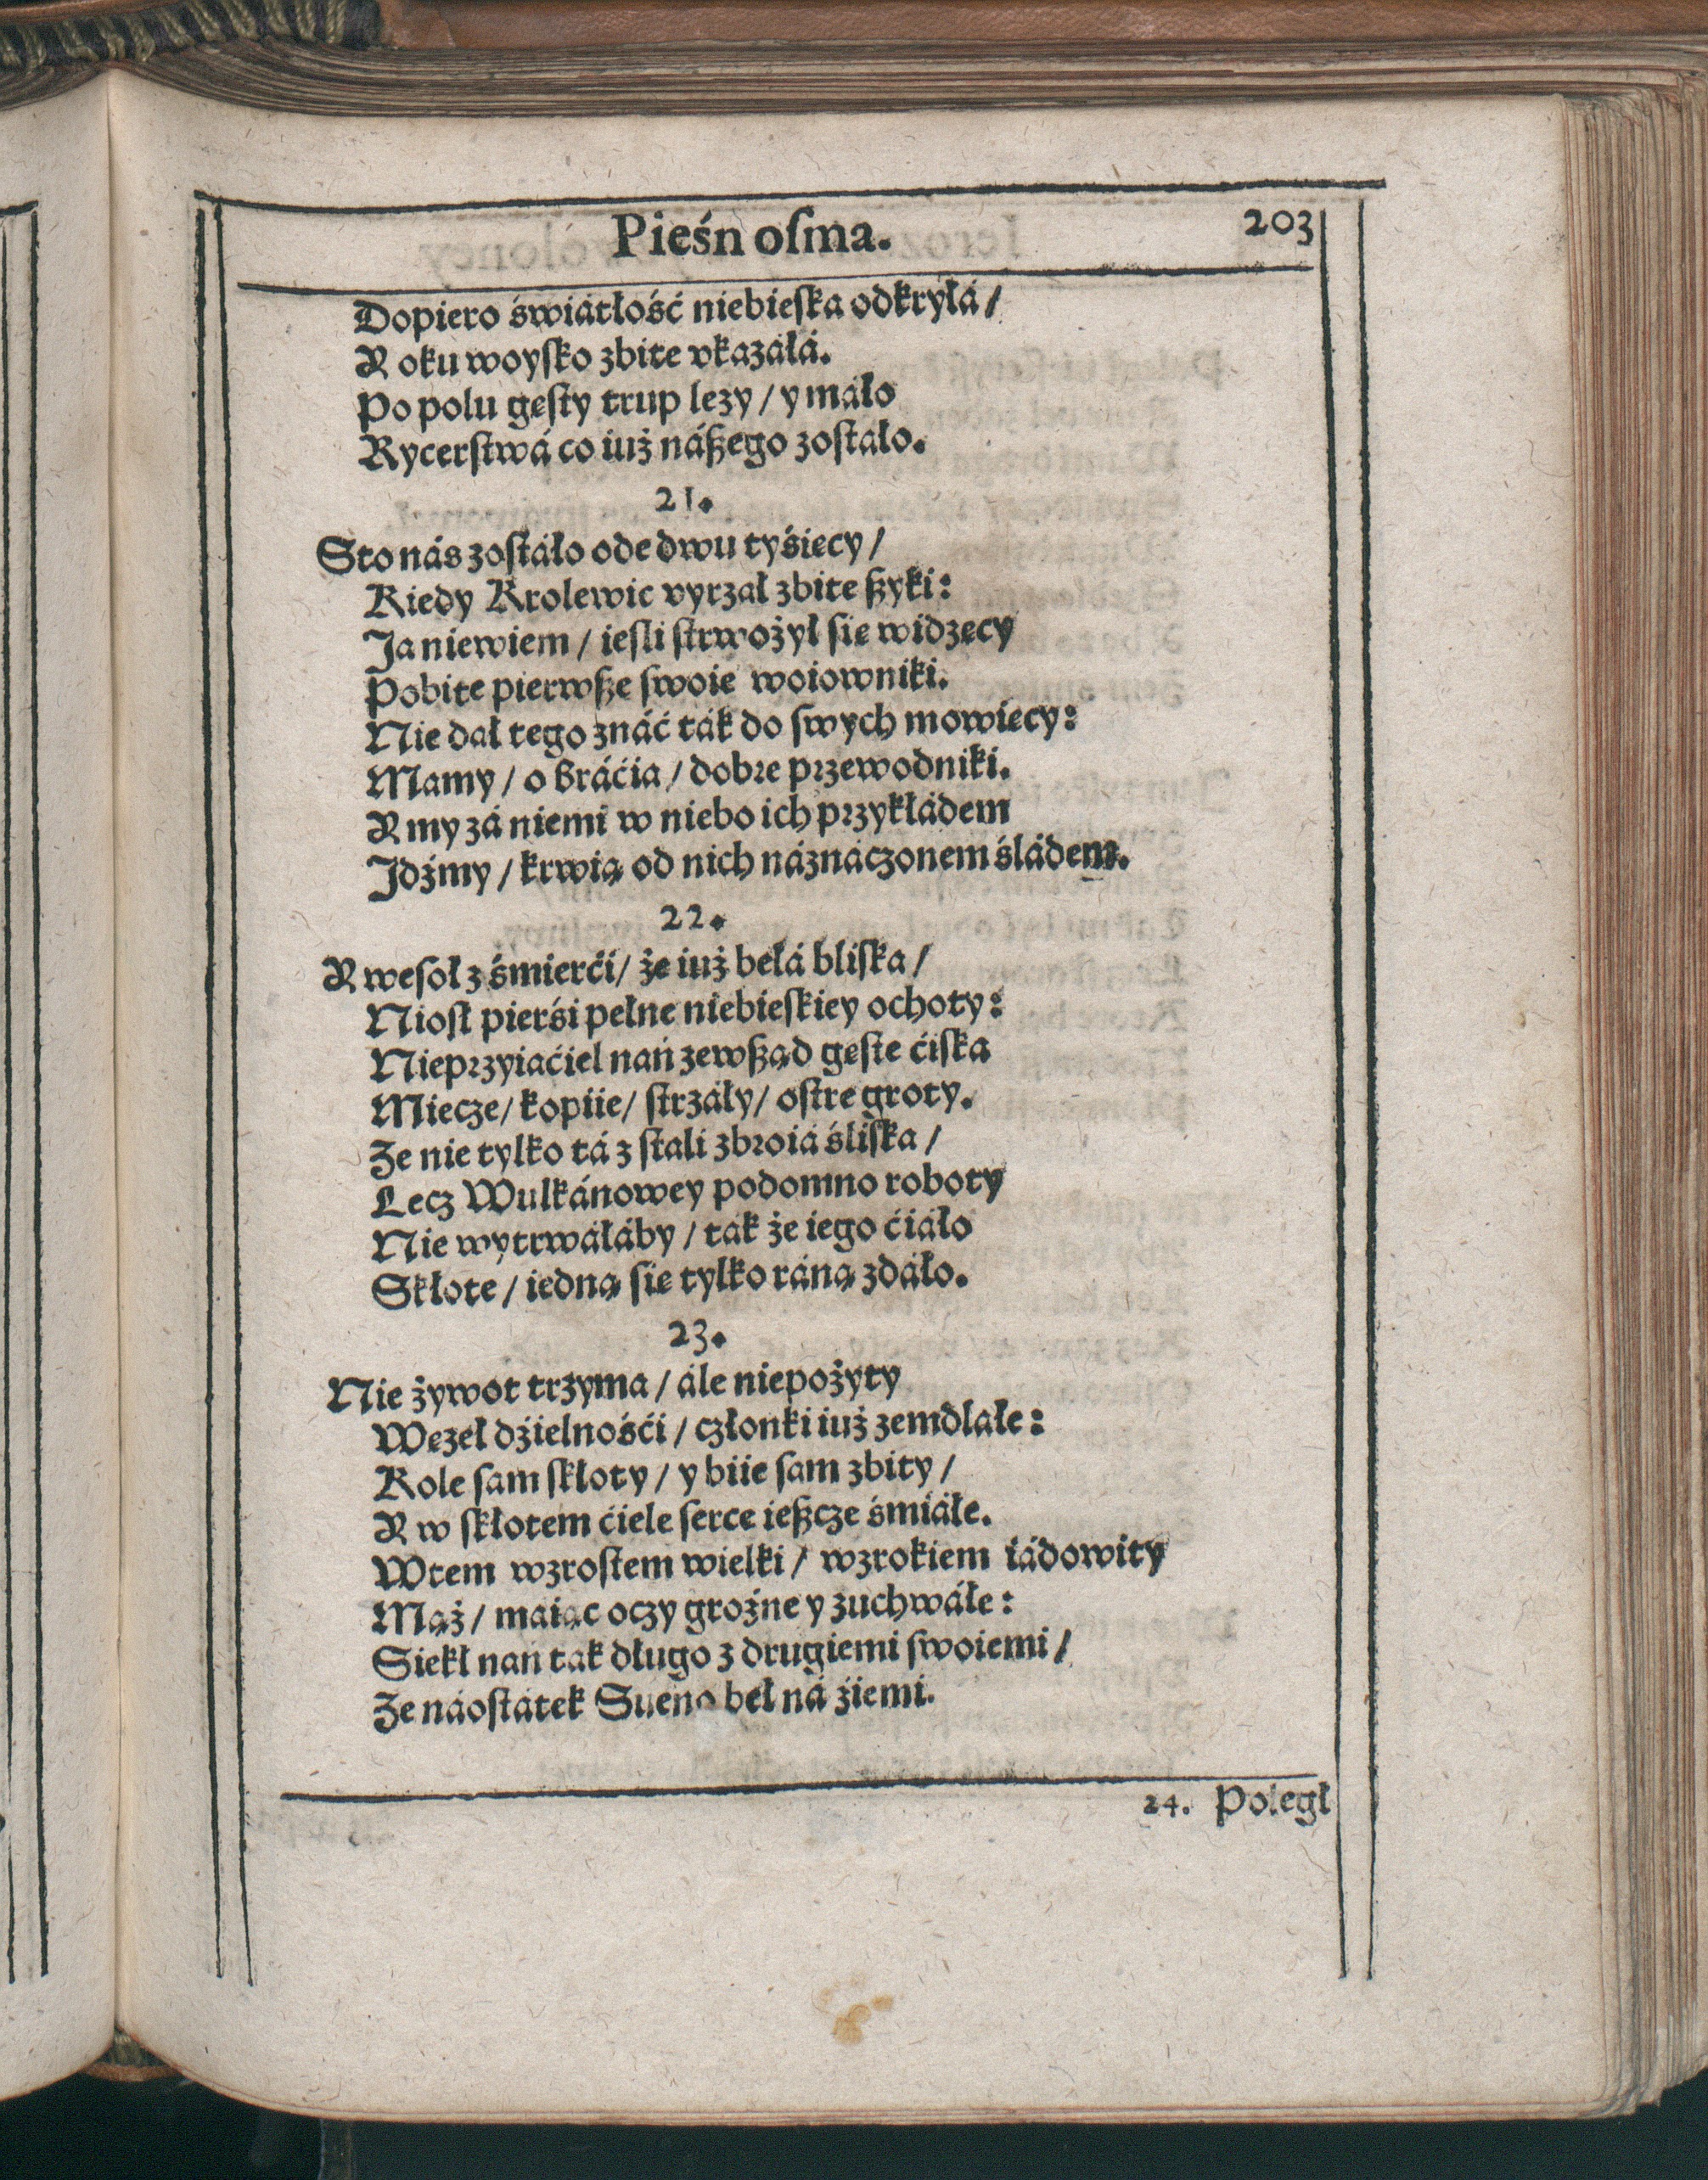 Pieśń oſma.
203
Dopiero świátłość niebieſka odkryłá /
A oku woyſko zbite vkazáłá.
Po polu gęſty trup leży / y máło
Rycerſtwá co iuż náßego zoſtáło.
21.
Sto nás zoſtáło ode dwu tyśięcy /
Kiedy Krolewic vyrzał zbite ßyki:
Ja niewiem / ieſli ſtrwożył ſię widzęcy
Pobite pierwße ſwoie woiowniki.
Nie dał tego znáć ták do ſwych mowięcy:
Mamy / o bráćia / dobre przewodniki.
A my zá niemi w niebo ich przykłádem
Jdźmy / krwią od nich náznáczonem śládem.
22.
A weſoł z śmierći / że iuż bełá bliſka /
Nioſł pierśi pełne niebieſkiey ochoty:
Nieprzyiaćiel nań zewßąd gęſte ćiſka
Miecze / kopiie / ſtrzáły / oſtre groty.
Że nie tylko tá z ſtali zbroiá śliſka /
Lecz Wulkánowey podomno roboty
Nie wytrwáłáby / ták że iego ćiáło
Skłote / iedną ſię tylko ráną zdáło.
23.
Nie żywot trzyma / ále niepożyty
Węzeł dźielnośći / członki iuż zemdlałe:
Kole ſam ſkłoty / y biie ſam zbity /
A w ſkłotem ćiele ſerce ießcze śmiáłe.
Wtem wzroſtem wielki / wzrokiem iádowity
Mąż / maiąc oczy groźne y zuchwáłe:
Siekł nań tak długo z drugiemi ſwoiemi /
Że náoſtátek Sueno beł ná źiemi.
24. Poległ